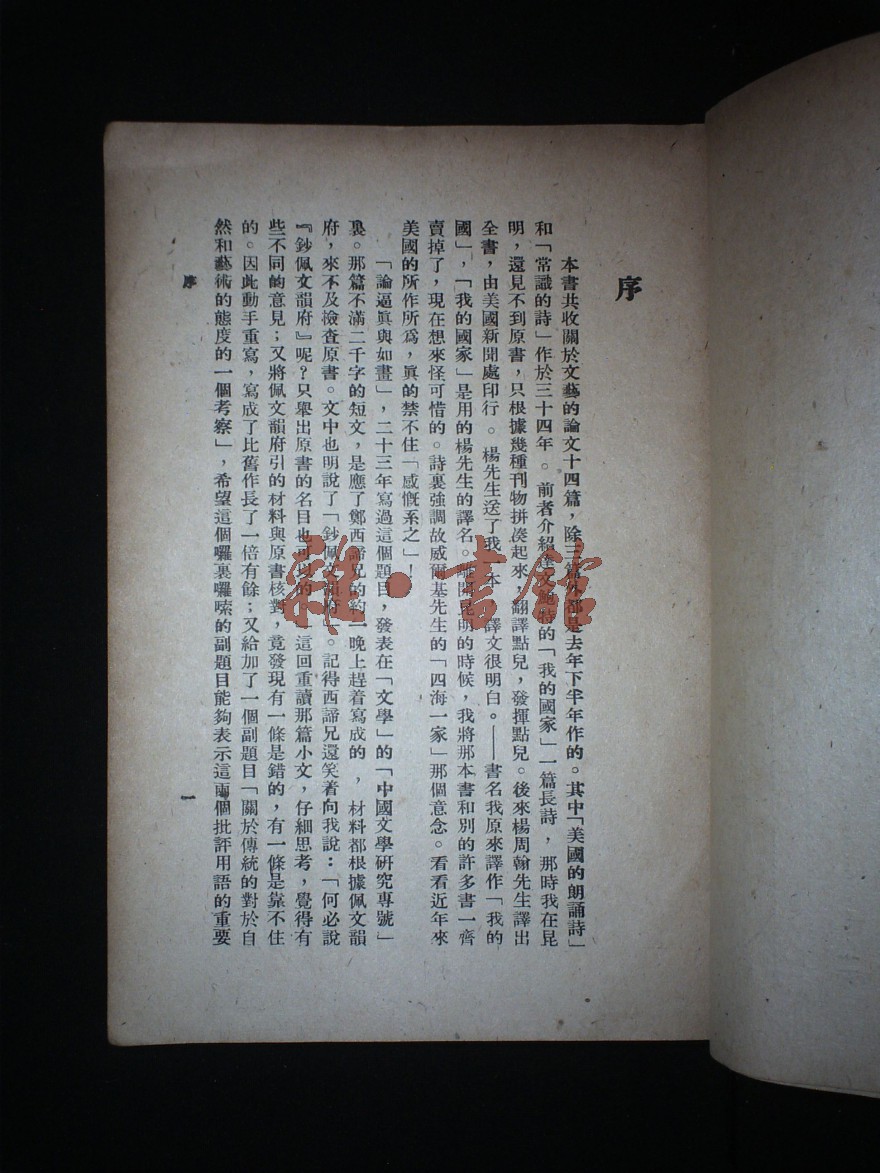 序
本書共收關於文藝的論文十四篇，除三篇外都是去年下半年作的。其中「美國的朗誦詩」
和「常識的詩」作於三十四年。前者介紹達文鮑特的「我的國家」一篇長詩，那時我在昆
明，還見不到原書，只根據幾種刊物拼湊起來，翻譯點兒，發揮點兒。後來楊周翰先生譯出
全書，由美國新聞處印行。楊先生送了我一本，譯文很明白。——書名我原來譯作「我的
國」，「我的國家」是用的楊先生的譯名。離開昆明的時候，我將那本書和別的許多書一齊
賣掉了，現在想來怪可惜的。詩裏強調故威爾基先生的「四海一家」那個意念。看看近年來
美國的所作所爲，眞的禁不住「感慨系之」！
「論逼眞與如畫」，二十三年寫過這個題目，發表在「文學」的「中國文學研究專號」
裏。那篇不滿二千字的短文，是應了鄭西諦兄的約一晚上趕着寫成的，材料都根據佩文韻
府，來不及檢查原書。文中也明說了「鈔佩文韻府」。記得西諦兄還笑着向我說：「何必說
『鈔佩文韻府』呢？只舉出原書的名目也可以的。」這回重讀那篇小文，仔細思考，覺得有
些不同的意見；又將佩文韻府引的材料與原書核對，竟發現有一條是錯的，有一條是靠不住
的。因此動手重寫，寫成了比舊作長了一倍有餘；又給加了一個副題目「關於傳統的對於自
然和藝術的態度的一個考察」，希望這個囉裏囉嗦的副題目能夠表示這兩個批評用語的重要
序
一
雜·書館